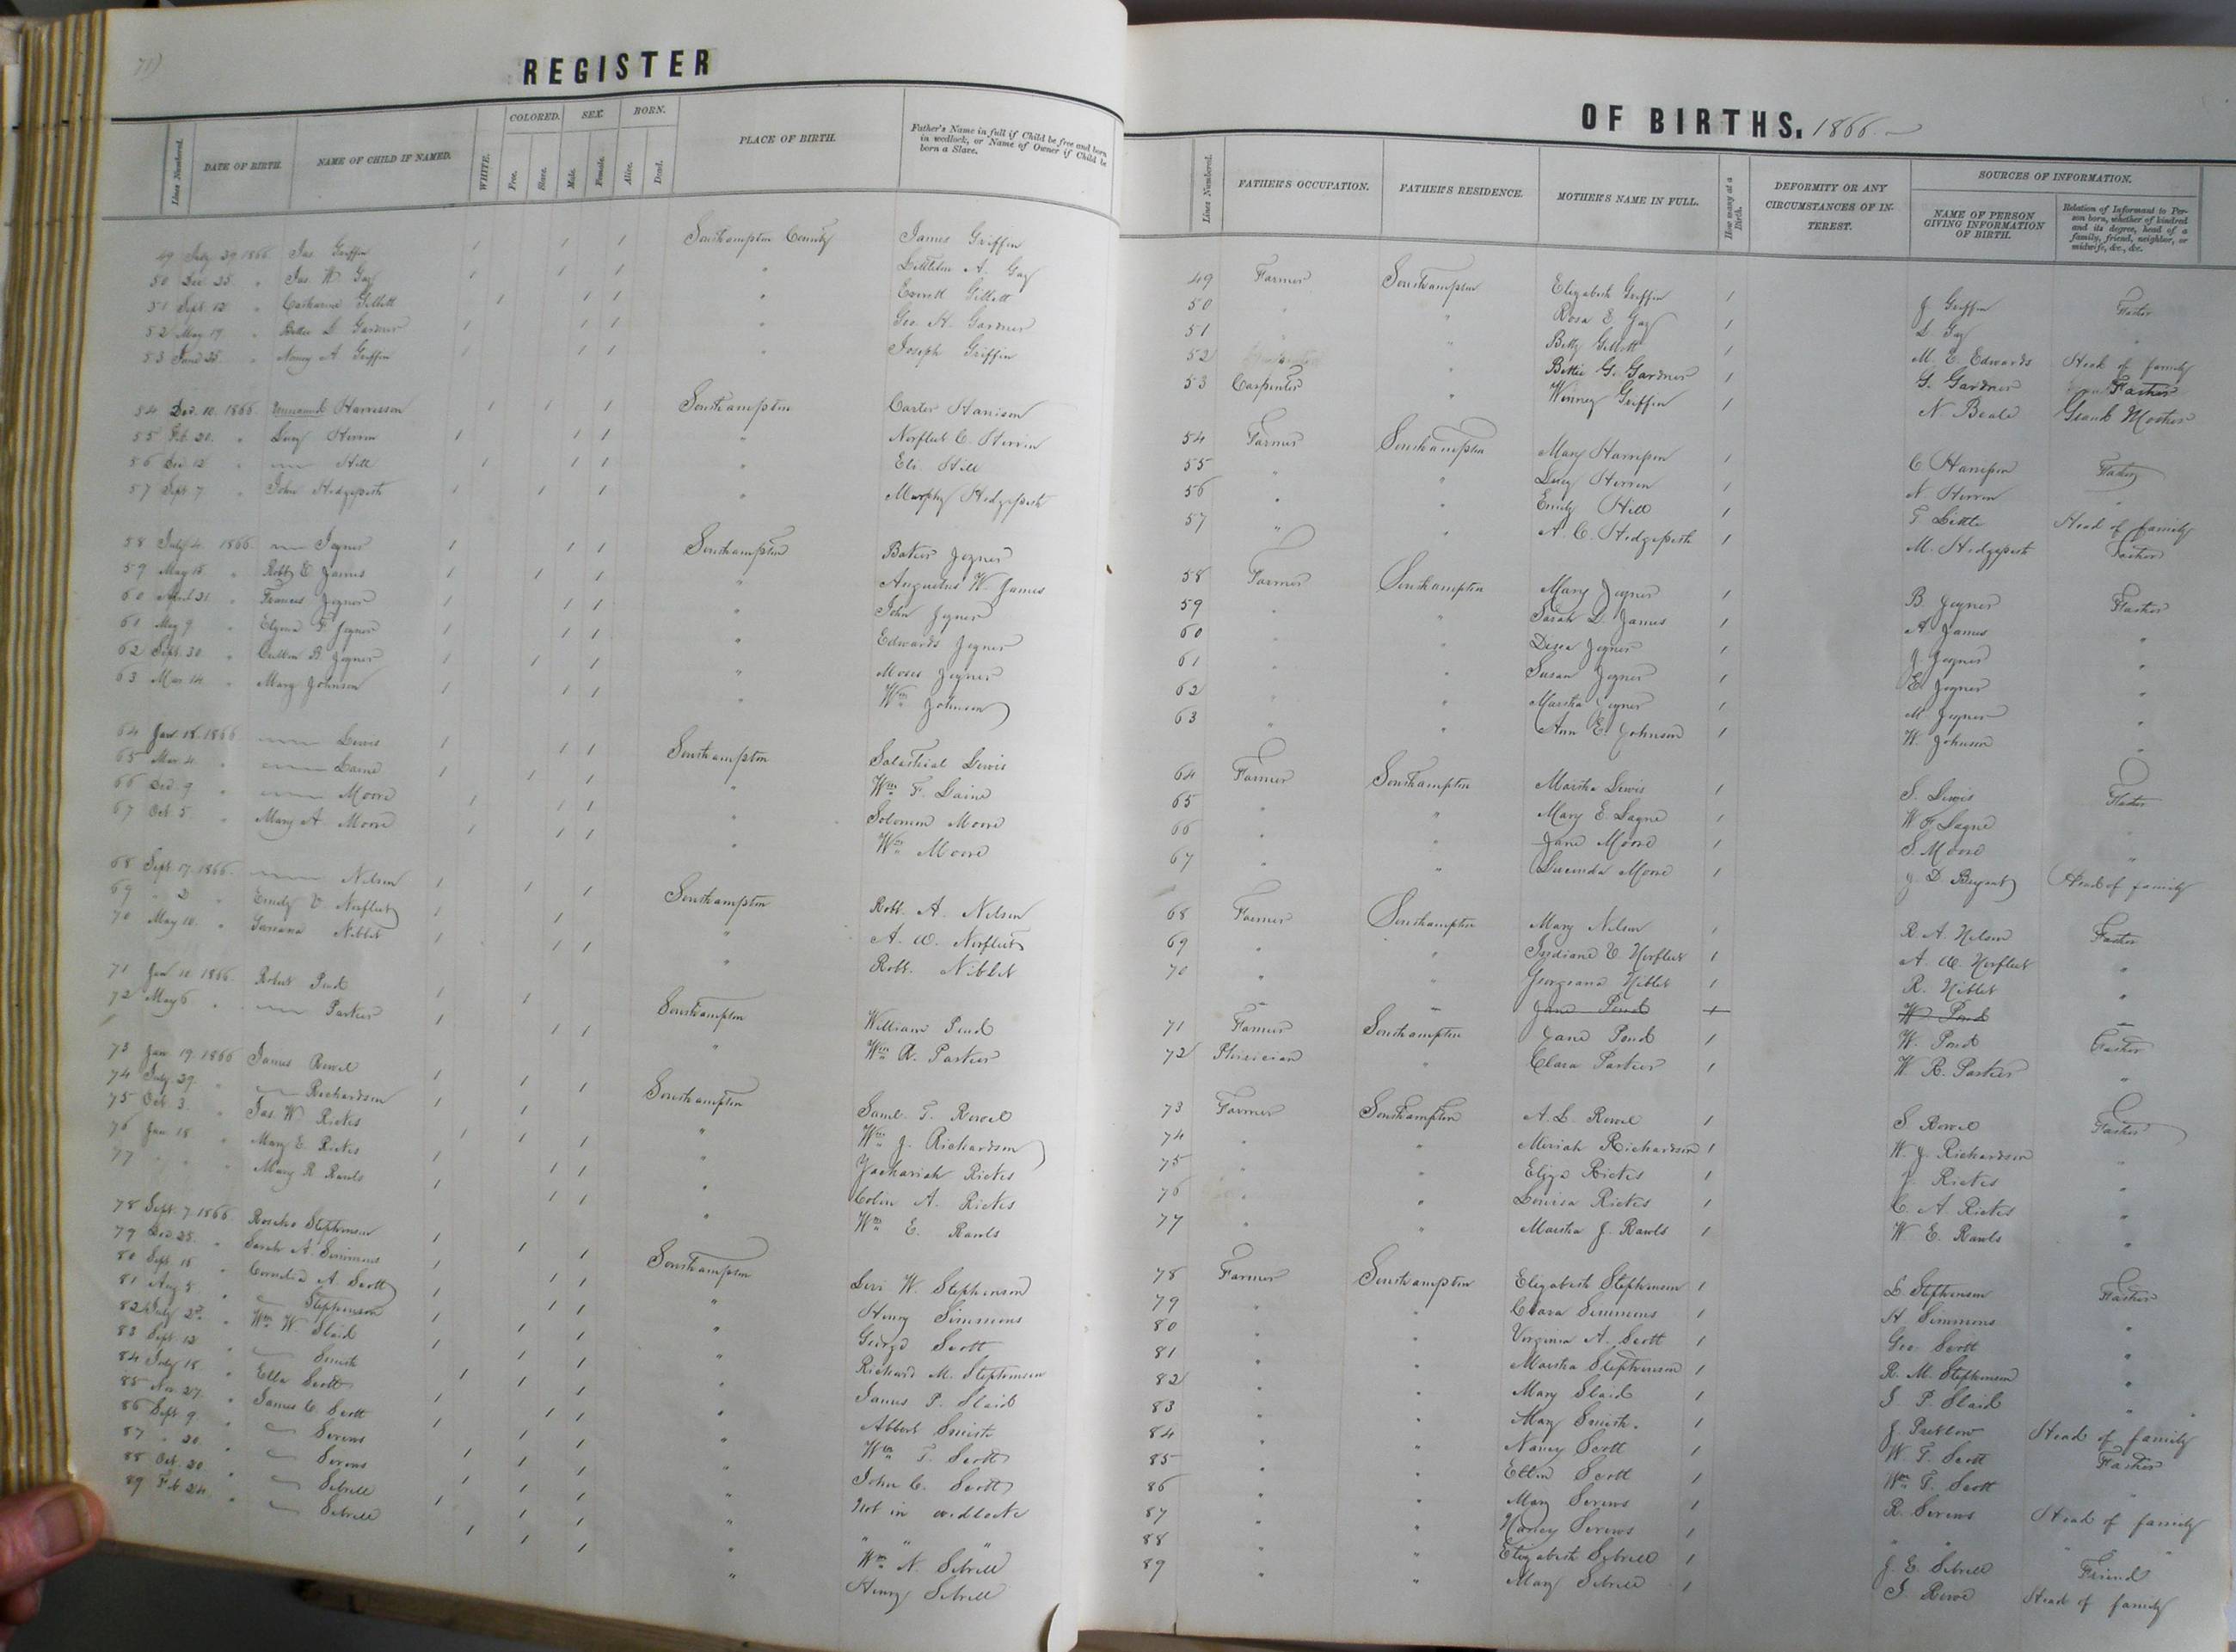 71)
REGISTER
Lines Numbered. DATE OF BIRTH. NAME OF CHILD IF NAMED. WHITE. COLORED. Free. Slave. SEX. Male. Female. BORN. Alive. Dead. PLACE OF BIRTH. Father's Name in full if Child be free and born in wedlock, or Name of Owner if Child be born a Slave.
49 July 29 1866 Jas. Griffin / / / Southampton County James Griffin
50 Dec. 25. " Jas W Gay / / / " Littleton A. Gay
51 Sept. 12 " Catharine Gillett / / / " Everett Gillett
52 May 19 " Bettie L Gardner / / / " Geo. H. Gardner
53 June 25. " Nancy A Griffin / / / " Joseph Griffin
54 Dec. 10. 1866. Unnamed Harrison / / / Southampton Carter Harrison
55 Feb 20. " Lucy Herrin / / / " Norfleet C. Herrin
56 Dec 12 " — Hill / / / " Eli Hill
57 Sept 7. " John Hedgepeth / / / " Murphy Hedgepeth
58 July 4. 1866. — Joyner / / / Southampton Joyner
59 May 15. " Robt E James / / / " Augustus W. James
60 April 21 " Frances Joyner / / / " John Joyner
61 May 9 " F. Joyner / / / " Edwards Joyner
62 Sept. 30. " B. Joyner / / / " Moses Joyner
63 Mar. 14. " Mary Johnson / / / " Wm Johnson
64 Jan 18. 1866 — Lewis / / / Southampton Lewis
65 Mar 4. " — Laine / / / " Wm F. Laine
66 Dec. 9 " — Moore / / / " Solomon Moore
67 Oct. 5. " Mary A. Moore / / / " Wm Moore
68 Sept. 17. 1866. — Nelson / / / Southampton Robt. A. Nelson
69 " 2 " Emily V Norfleet / / / " A. W. Norfleet
70 May 10. " Niblet / / / " Robt. Niblet
71 Jan 10. 1866. Robert Pond / / / Southampton William Pond
72 May 6. " — Parker / / / " Wm R. Parker
73 Jan 19. 1866 James Rowel / / / Southampton Saml. T. Rowel
74 July 29. " — Richardson / / / " Wm J. Richardson
75 Oct 3. " Jas. W Ricks / / / " Zachariah Ricks
76 Jan 18 " Mary E. Ricks / / / " Colin A. Ricks
77 " " " Mary R Rawls / / / " Wm E. Rawls
78 Sept. 7. 1866 Stephenson / / / Southampton Levi W. Stephenson
79 Dec 28. " Sarah A. Simmons / / / " Henry Simmons
80 Sept. 18 " Cornelia A. Scott / / / " George Scott
81 Aug 8. " — Stephenson / / / " Richard M. Stephenson
82 July 2d " Wm W. Slaid / / / " James P. Slaid
83 Sept. 12 " — Smith / / / " Albert Smith
84 July 18. " Ella Scott / / / " Wm T. Scott
85 Nov. 27. " James C. Scott / / / " John C. Scott
86 Sept. 9. " — Screws / / / " Not in wedlock
87 " 20. " — Screws / / / " " " "
88 Oct. 20. " — Sebrell / / / " Wm N. Sebrell
89 Feb. 24. " — Sebrell / / / " Henry Sebrell
OF BIRTHS. 1866
Lines Numbered. FATHER'S OCCUPATION. FATHER'S RESIDENCE. MOTHER'S NAME IN FULL. How many at a Birth. DEFORMITY OR ANY CIRCUMSTANCES OF INTEREST. SOURCES OF INFORMATION. NAME OF PERSON GIVING INFORMATION OF BIRTH. Relation of Informant to Person born, whether of kindred and its degree, head of a family, friend, neighbor, or midwife, &c., &c.
49 Farmer Southampton Elizabeth Griffin / J Griffin Father
50 " " Rosa E. Gay / L Gay "
51 " " Betty Gillett / M. E. Edwards Head of family
52 " Bettie G. Gardner / G. Gardner Father
53 Carpenter " Winney Griffin / N Beale Grank Mother
54 Farmer Southampton Mary Harrison / C Harrison Father
55 " " Lucy Herrin / N Herrin "
56 " " Emily Hill / T Little Head of family
57 " " A. C. Hedgepeth / M. Hedgepeth Father
58 Farmer Southampton Mary Joyner / B. Joyner Father
59 " " Sarah L. James / A. James "
60 " " Joyner / J Joyner "
61 " " Susan Joyner / E Joyner "
62 " " Martha Joyner / M Joyner "
63 " " Ann E. Johnson / W. Johnson "
64 Farmer Southampton Martha Lewis / S. Lewis Father
65 " " Mary E. Layne / W F Layne "
66 " " Jane Moore / S. Moore "
67 " " Lucinda Moore / J. D. Bryant Head of family
68 Farmer Southampton Mary Nelson / R A. Nelson Father
69 " " Indiana V. Norfleet / A. W. Norfleet "
70 " " Georgeana Niblet / R. Niblet "
Jane Pond / W Pond
71 Farmer Southampton Jane Pond / W. Pond Father
72 Phisician " Clara Parker / W R. Parker "
73 Farmer Southampton A. L. Rowel / S Rowel Father
74 " " Meriah Richardson / W. J. Richardson "
75 " " Eliza Ricks / Z Ricks "
76 " " Louisa Ricks / C. A Ricks "
77 " " Martha J. Rawls / W E. Rawls "
78 Farmer Southampton Elizabeth Stephenson / L. Stephenson Father
79 " " Clara Simmons / H. Simmons "
80 " " Virginia A. Scott / Geo Scott "
81 " " Martha Stephenson / R. M. Stephenson "
82 " " Mary Slaid / J. P. Slaid "
83 " " Mary Smith. / J. Pretlow Head of family
84 " " Nancy Scott / W. T. Scott Father
85 " " Ellen Scott / Wm T. Scott "
86 " " Mary Screws / R. Screws Head of family
87 " " Nancy Screws / " " "
88 " " Elizabeth Sebrell / J. E. Sebrell Friend
89 " " Mary Sebrell / J. Rowe Head of family